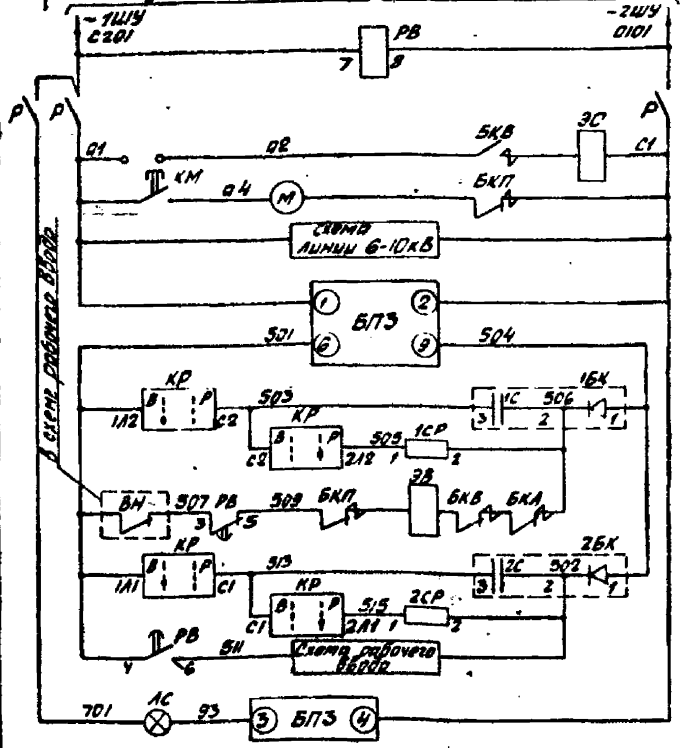 ~1ШУ
С201
~2ШУ
0101
РВ
7
8
Р
Р
Р
01
02
БКВ
ЭС
С1
КМ
04
М
БКП
Схема
линии 6-10кВ
1
2
БПЗ
6
9
501
504
В схеме рабочего ввода
КР
В
Р
1Л2
С2
503
1С
506
1БК
3
2
1
КР
В
Р
С2
2Л2
505
1
1СР
2
ВН
507
РВ
3
5
509
БКП
ЭВ
БКВ
БКА
КР
В
Р
1Л1
С1
513
2С
502
2БК
3
2
1
КР
В
Р
С1
2Л1
515
1
2СР
2
РВ
4
6
511
Схема рабочего
ввода
701
ЛС
93
3
БПЗ
4